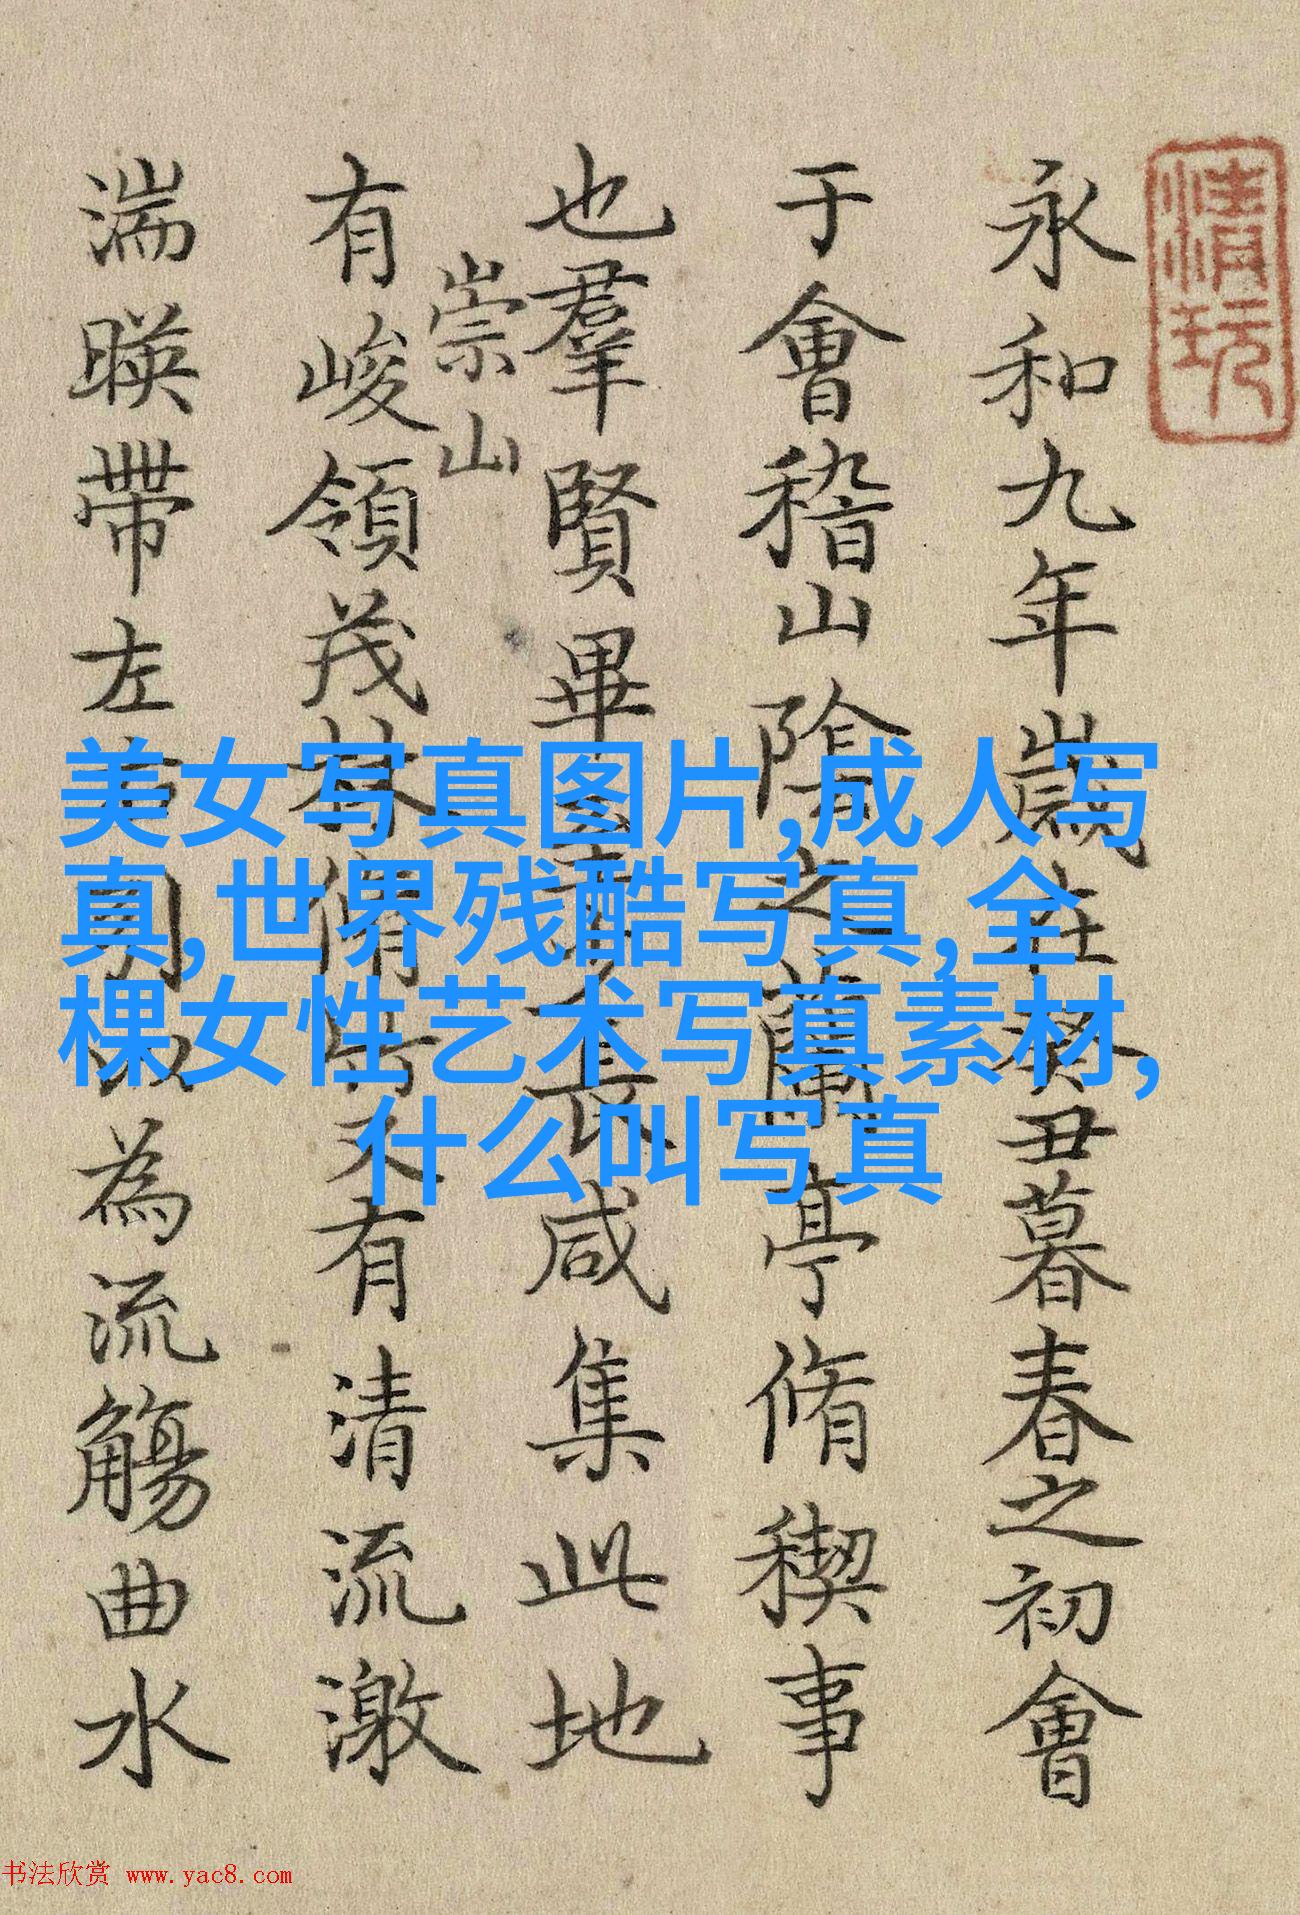 清玩
永和九年歲在癸丑暮春之初會
于會稽山陰之蘭亭脩稧事
也羣賢畢至少長咸集此地
崇山
有峻領茂林脩竹又有清流激
湍暎帶左右引以為流觴曲水
美女写真图片,成人写
真,世界残酷写真,全
棵女性艺术写真素材,
什么叫写真
书法欣赏 www.yac8.com